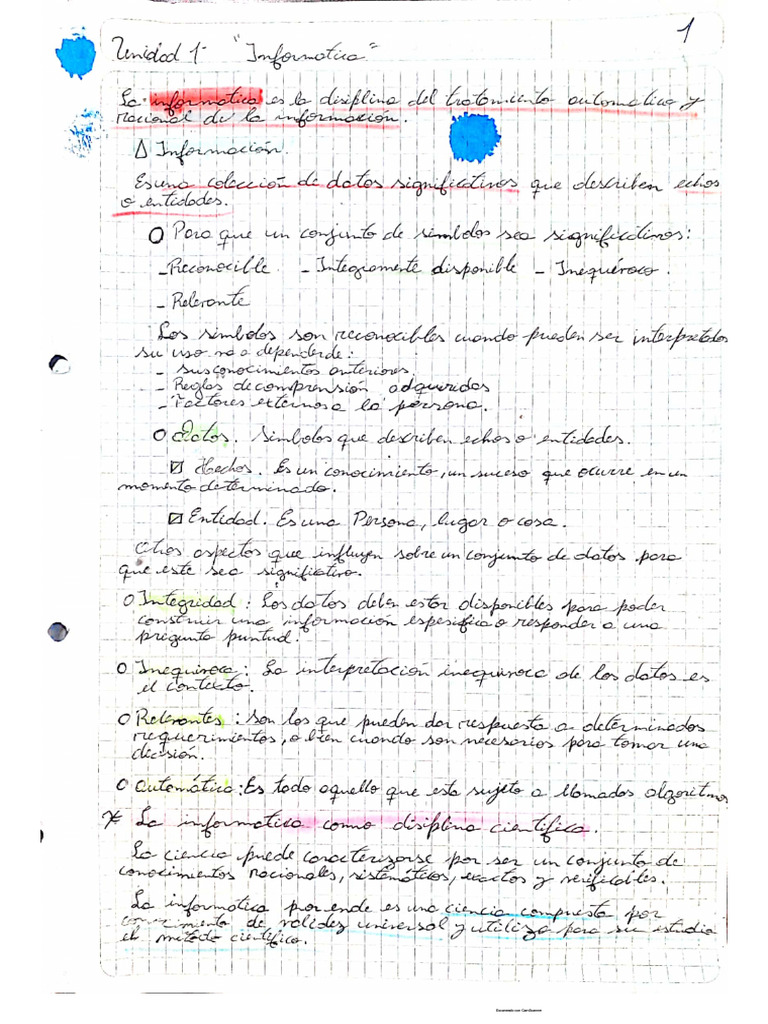 1
Unidad 1- "Informatica"
La informatica es la disiplina del tratamiento automatico y
racional de la información.
Δ Información.
Es una colección de datos significativos que describen echos
o entidades.
O Para que un conjunto de simbolos sea significativos:
- Reconocible - Integramente disponible - Inequívoco.
- Relevante
Los simbolos son reconocibles cuando pueden ser interpretados
su uso va a depender de:
- sus conocimientos anteriores.
- Reglas de comprensión adquiridas
- Factores externos a la persona.
O Datos. Simbolos que describen echos o entidades.
☑ Hechos. Es un conocimiento, un suceso que ocurre en un
momento determinado.
☑ Entidad. Es una Persona, lugar o cosa.
Otros aspectos que influyen sobre un conjunto de datos para
que este sea significativo.
O Integridad: Los datos deben estar disponibles para poder
construir una información espesifica o responder a una
pregunta puntual.
O Inequivoca: La interpretación inequivoca de los datos es
el contexto.
O Relevantes: Son los que pueden dar respuesta a determinados
requerimientos, o bien cuando son necesarios para tomar una
decisión.
O Automática: Es todo aquello que esta sujeto a llamados algoritmos
* La informatica como disiplina cientifica.
La ciencia puede caracterizarse por ser un conjunto de
conocimientos racionales, sistemáticos, exactos y verificables.
La informatica por ende es una ciencia compuesta por
conocimiento de validez universal y utiliza para su estudio
el metodo cientifico.
Escaneado con CamScanner